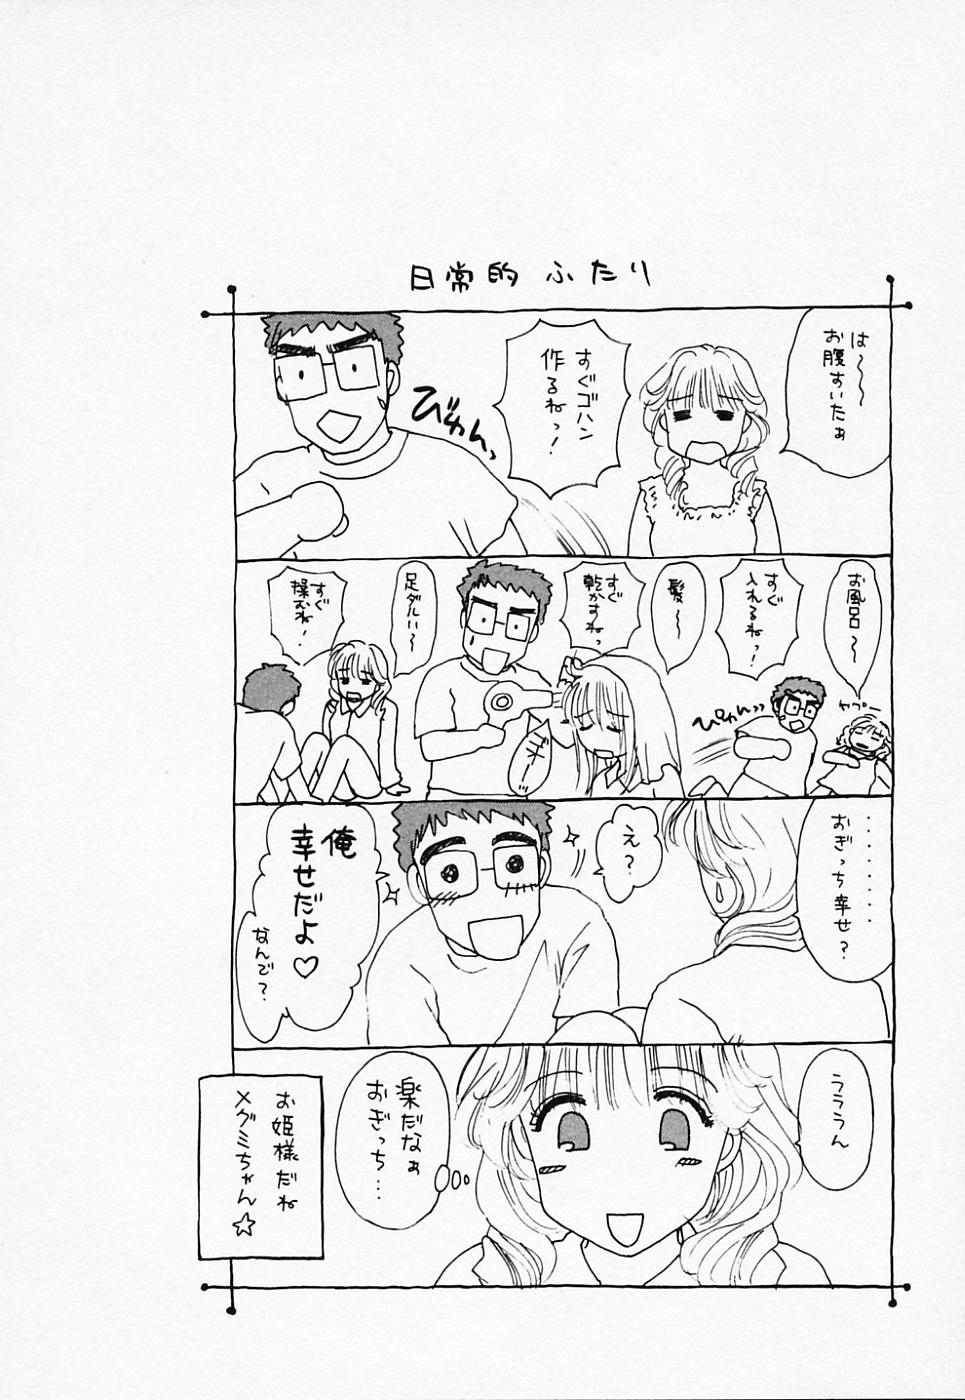 日常的 ふたり
は〜〜
お腹すいたぁ
すぐゴハン
作るねっ!
びゅん、
お風呂〜
ヤプー
すぐ
入れるねっ!
ぴゅん
髪〜
すぐ
乾かすねっ
ギー
足ダルい〜
すぐ
揉むね!
・・・・・・・
おぎっち幸せ?
え?
俺
幸せだよ♡
なんで?
うううん
楽だなぁ
おぎっち…
お姫様だね
メグミちゃん☆